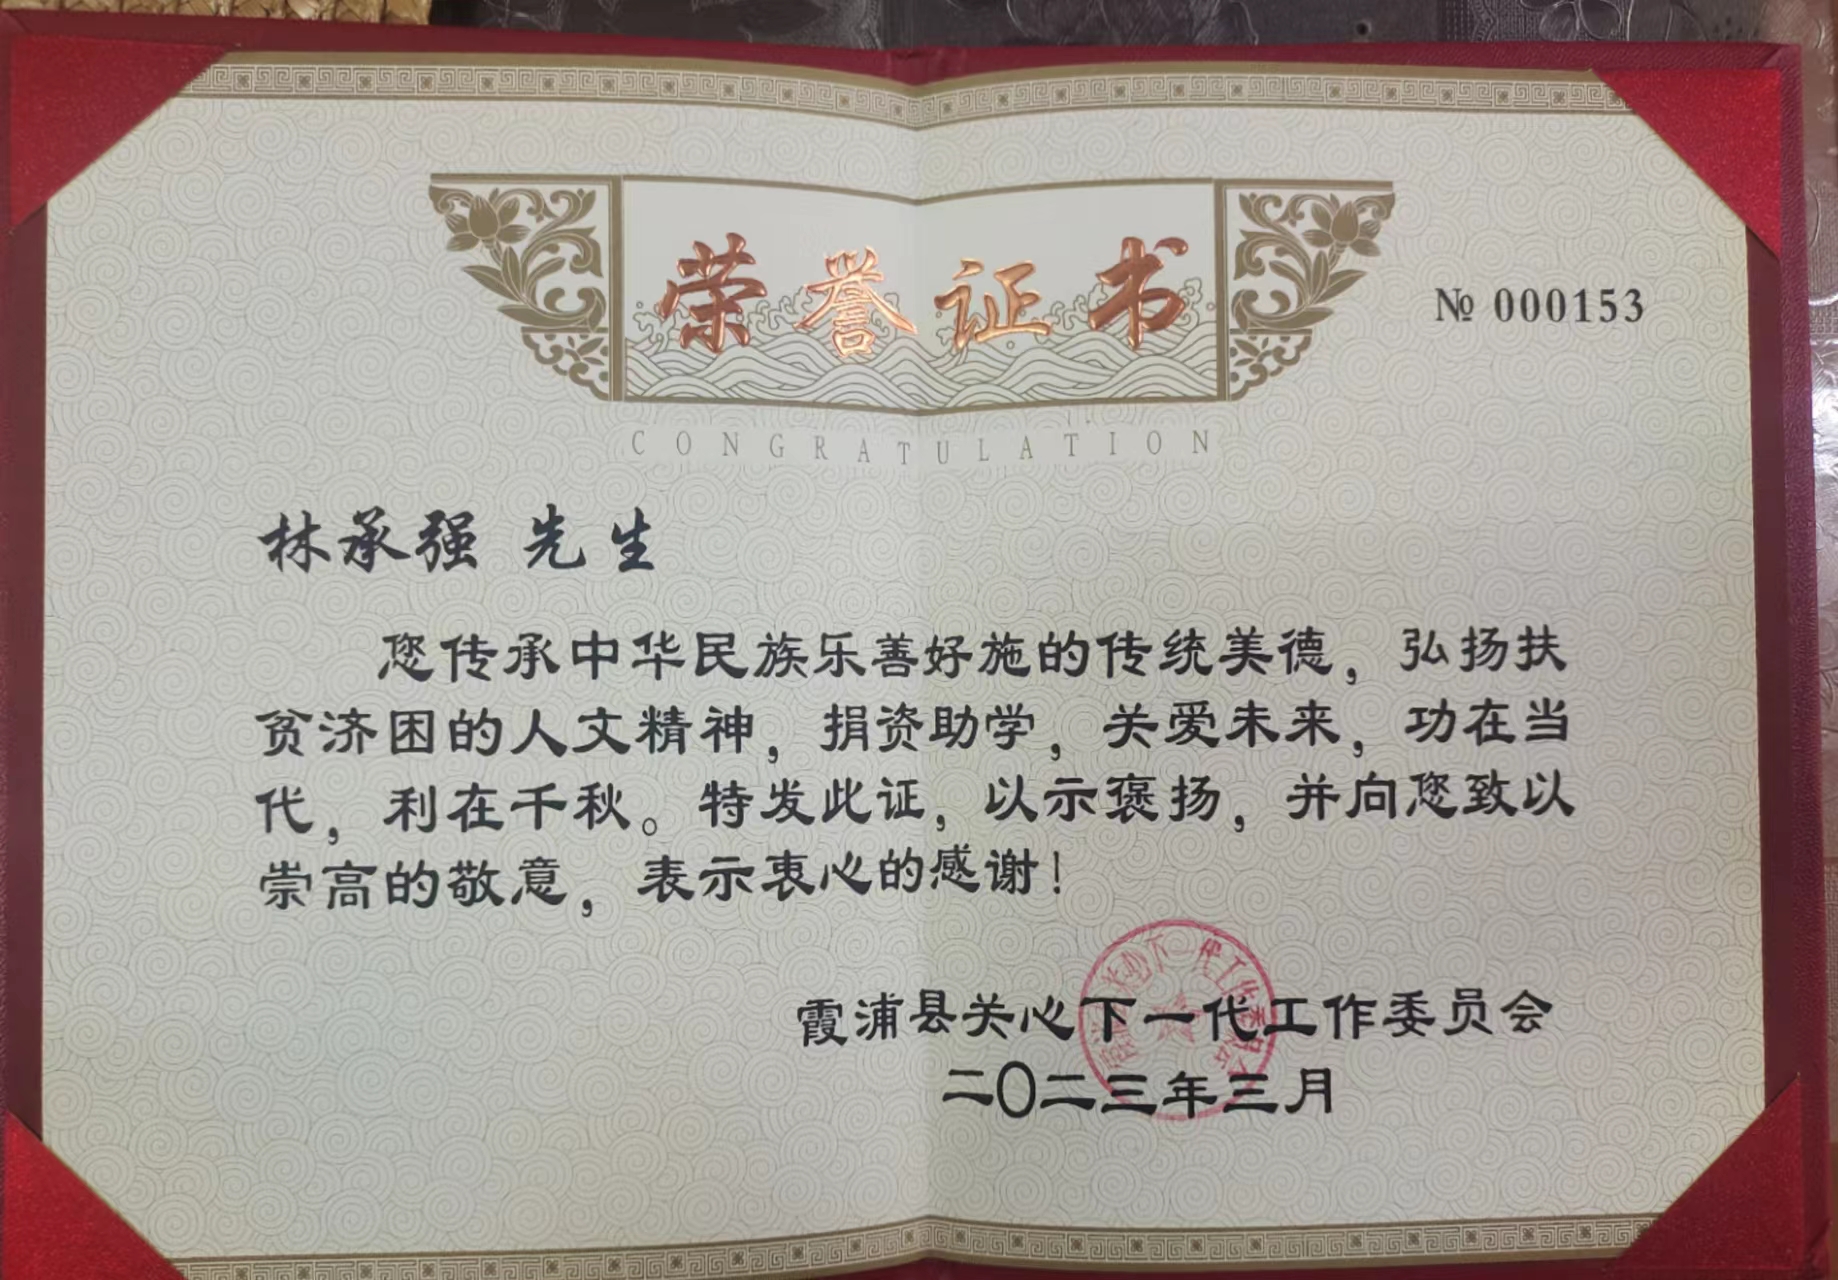 荣誉证书
№ 000153
CONGRATULATION
林承强 先生
您传承中华民族乐善好施的传统美德，弘扬扶
贫济困的人文精神，捐资助学，关爱未来，功在当
代，利在千秋。特发此证，以示褒扬，并向您致以
崇高的敬意，表示衷心的感谢！
霞浦县关心下一代工作委员会
二〇二三年三月